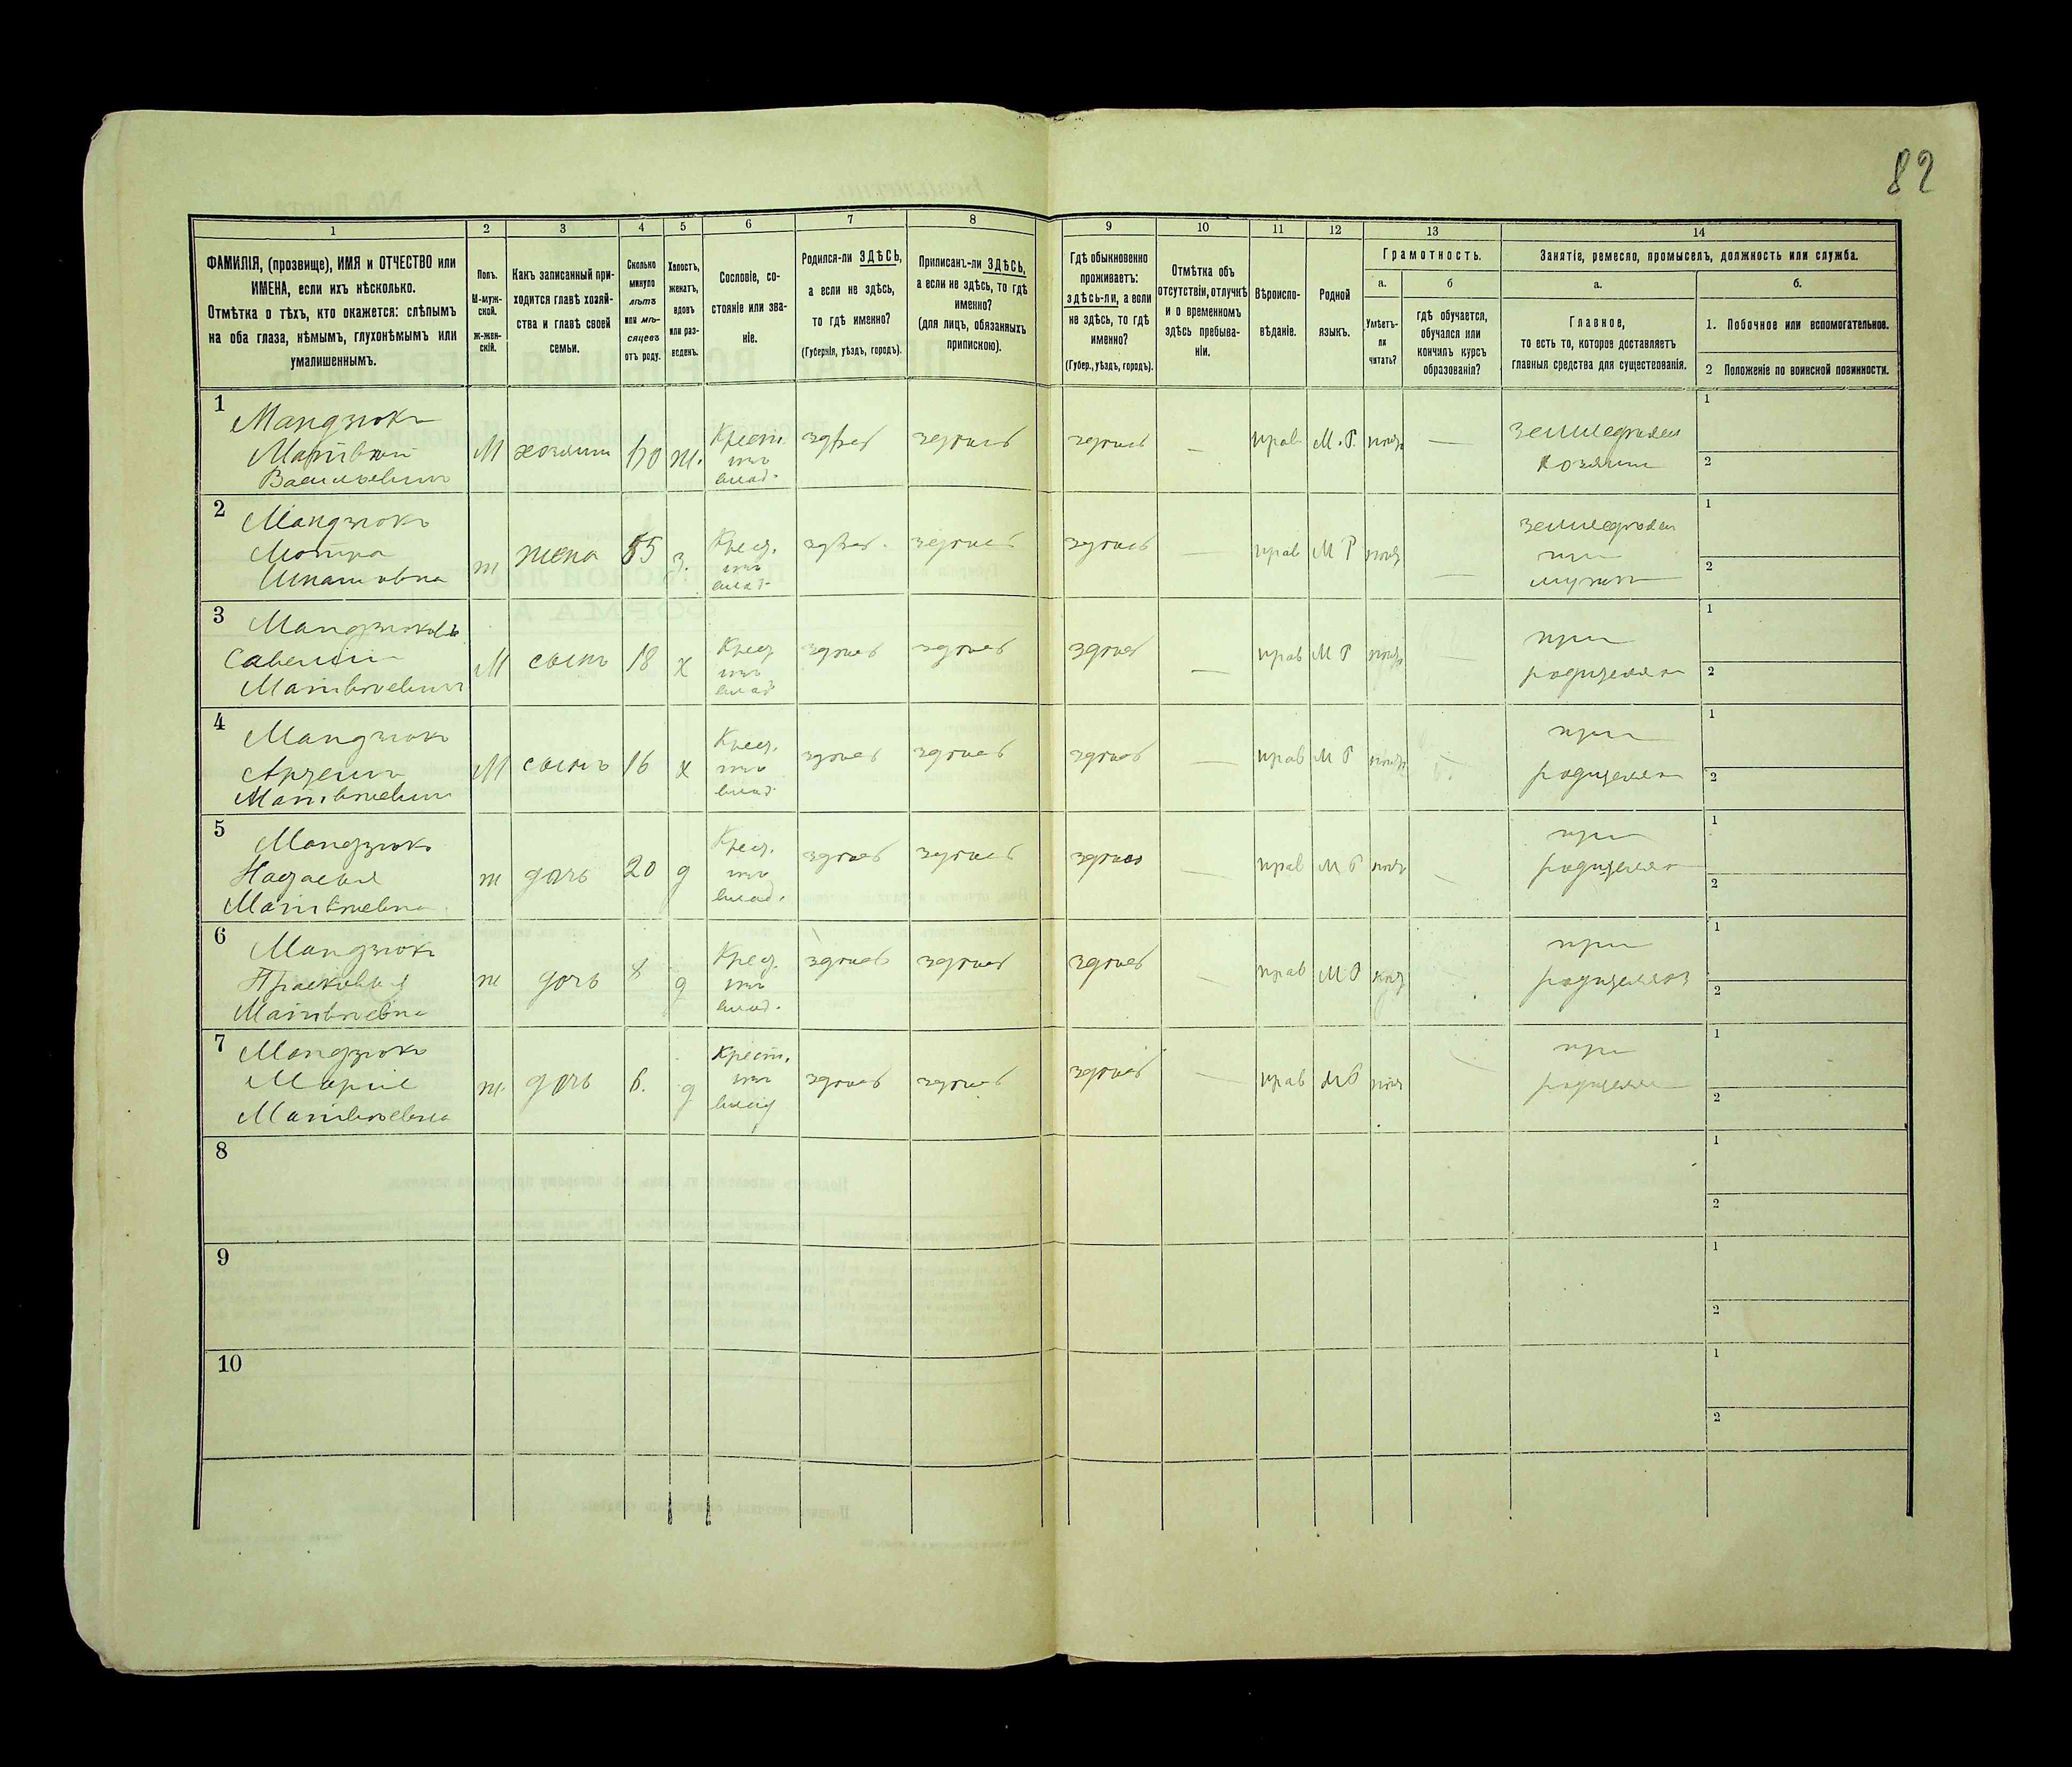 82
1 2 3 4 5 6 7 8 9 10 11 12 13 14
ФАМИЛІЯ, (прозвище), ИМЯ и ОТЧЕСТВО или
ИМЕНА, если ихъ нѣсколько.
Отмѣтка о тѣхъ, кто окажется: слѣпымъ
на оба глаза, нѣмымъ, глухонѣмымъ или
умалишеннымъ.
Полъ.
М-муж-
ской.
ж-жен-
скій.
Какъ записанный при-
ходится главѣ хозяй-
ства и главѣ своей
семьи.
Сколько
минуло
лѣтъ
или мѣ-
сяцевъ
отъ роду.
Холостъ,
женатъ,
вдовъ
или раз-
веденъ.
Сословіе, со-
стояніе или зва-
ніе.
Родился-ли ЗДѢСЬ,
а если не здѣсь,
то гдѣ именно?
(Губернія, уѣздъ, городъ).
Приписанъ-ли ЗДѢСЬ,
а если не здѣсь, то гдѣ
именно?
(для лицъ, обязанныхъ
припискою).
Гдѣ обыкновенно
проживаетъ:
здѣсь-ли, а если
не здѣсь, то гдѣ
именно?
(Губер., уѣздъ, городъ).
Отмѣтка объ
отсутствіи, отлучкѣ
и о временномъ
здѣсь пребыва-
ніи.
Вѣроиспо-
вѣданіе.
Родной
языкъ.
Грамотность.
а.
Умѣетъ-
ли
читать?
б
гдѣ обучается,
обучался или
кончилъ курсъ
образованія?
Занятіе, ремесло, промыселъ, должность или служба.
а.
Главное,
то есть то, которое доставляетъ
главныя средства для существованія.
б.
1. Побочное или вспомогательное.
2 Положеніе по воинской повинности.
1
Мандзюкъ
Матвѣй
Васильевичъ
М хозяинъ ж.
Крест.
изъ
влад.
здѣсь здѣсь здѣсь — прав. М.Р. —
земледѣлія
хозяинъ
1
2
2
Мандзюкъ
Мотра
ж жена 55 з.
Крес.
изъ
влад.
здѣсь. здѣсь здѣсь — прав М Р —
земледѣлія
при
мужѣ
1
2
3
Савелій
Матвѣевичъ
М сынъ 18 х
Крес
изъ
влад
здѣсь здѣсь здѣсь — прав М Р —
при
родителяхъ
1
2
4
Мандзюкъ
Матвѣевичъ
М сынъ 16 х
Крес.
изъ
влад.
здѣсь здѣсь здѣсь — прав М Р —
при
родителяхъ
1
2
5
Мандзюкъ
Матвѣевна
ж дочь 20 д
Крес.
изъ
влад.
здѣсь здѣсь здѣсь — прав М Р —
при
родителяхъ
1
2
6
Мандзюкъ
Прасковья
Матвѣевна
ж дочь 8 д
Крес.
изъ
влад.
здѣсь здѣсь здѣсь — прав М Р
при
родителяхъ
1
2
7
Мандзюкъ
Марія
Матвѣевна
ж. дочь 6. д
Крест.
изъ
влад
здѣсь здѣсь здѣсь — прав М Р —
при
родителяхъ
1
2
8
1
2
9
1
2
10
1
2